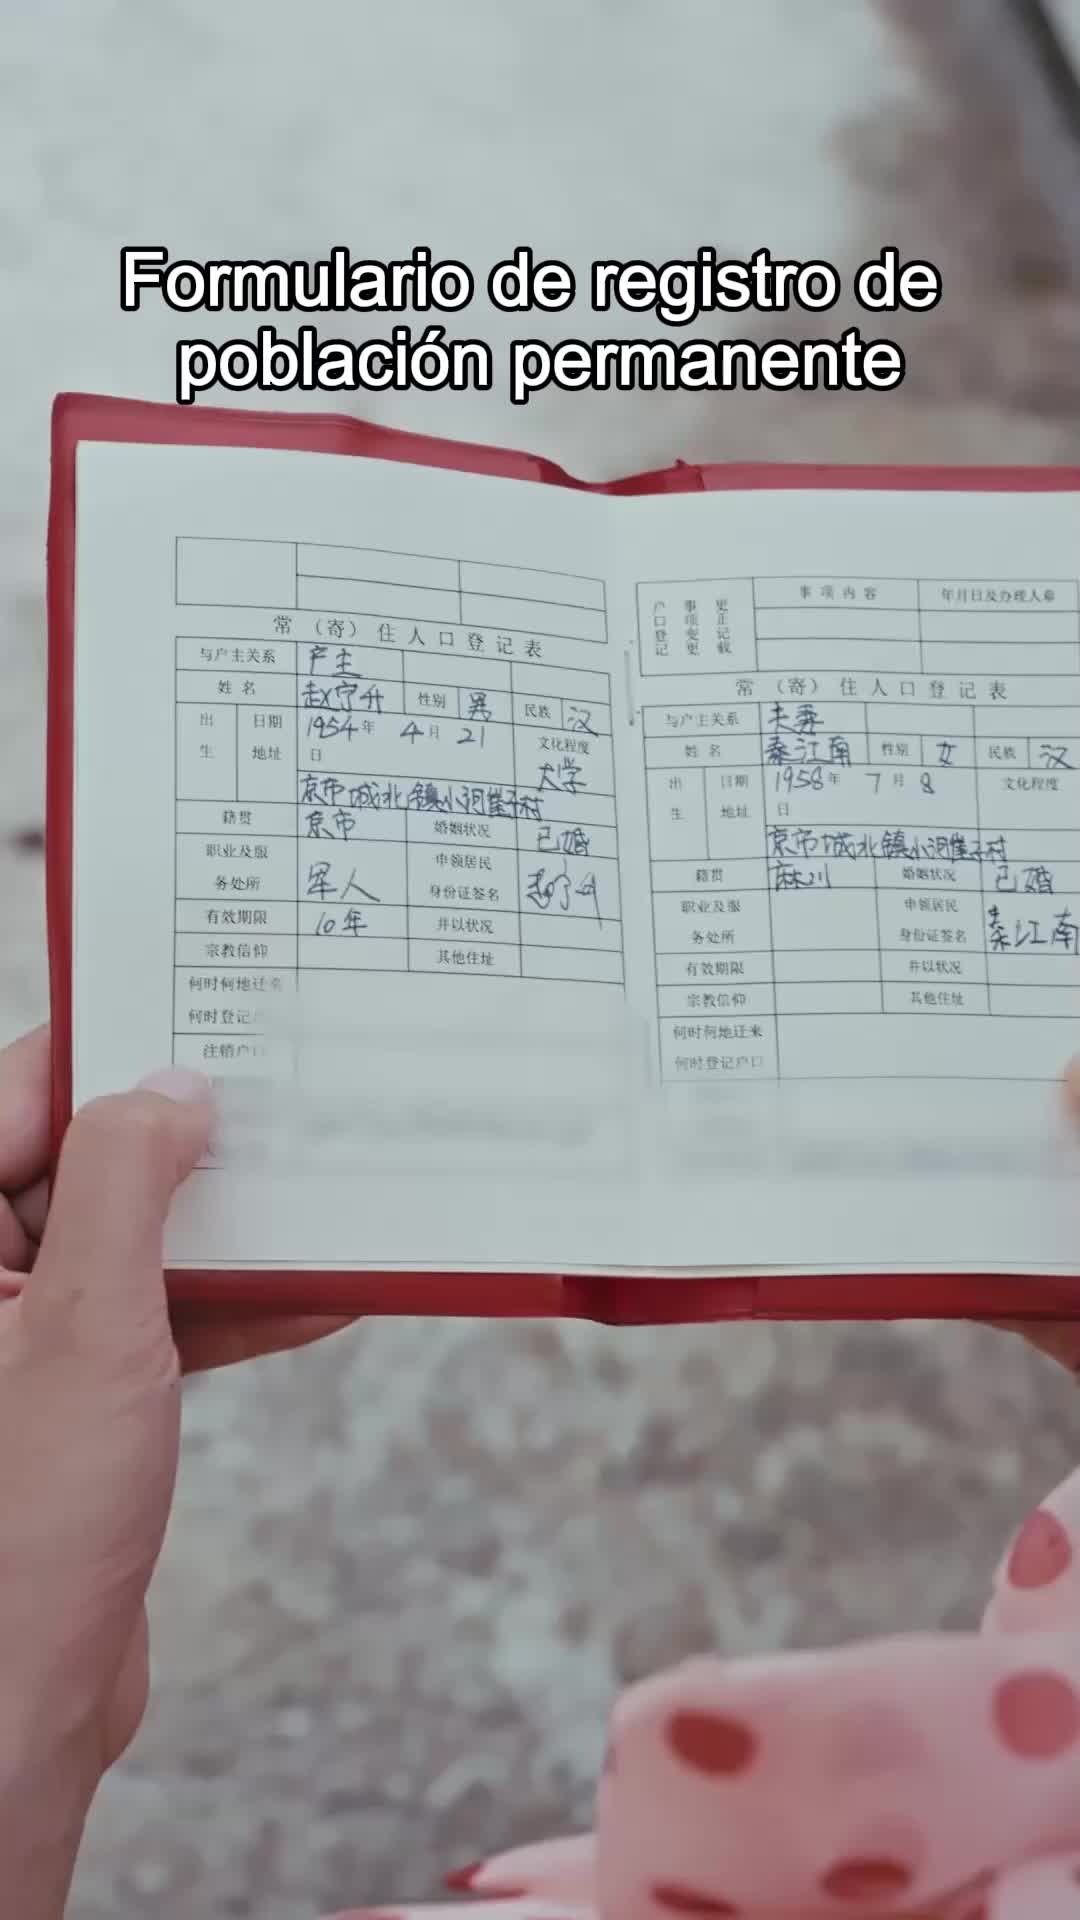 Formulario de registro de
población permanente
常（寄）住人口登记表
与户主关系 户主
姓名 赵宁升 性别 男 民族 汉
出生 日期 1954年 4月 21日 文化程度 大学
地址 京市城北镇小河崖子村
籍贯 京市 婚姻状况 已婚
职业及服务处所 军人 申领居民身份证签名
有效期限 10年 井以状况
宗教信仰 其他住址
何时何地迁来
何时登记
注销户口
户口登记 事项变更 更正记载 事项内容 年月日及办理人章
常（寄）住人口登记表
与户主关系 夫妻
姓名 秦江南 性别 女 民族 汉
出生 日期 1958年 7月 8日 文化程度
地址 京市城北镇小河崖子村
籍贯 麻川 婚姻状况 已婚
职业及服务处所 申领居民身份证签名 秦江南
有效期限 井以状况
宗教信仰 其他住址
何时何地迁来
何时登记户口